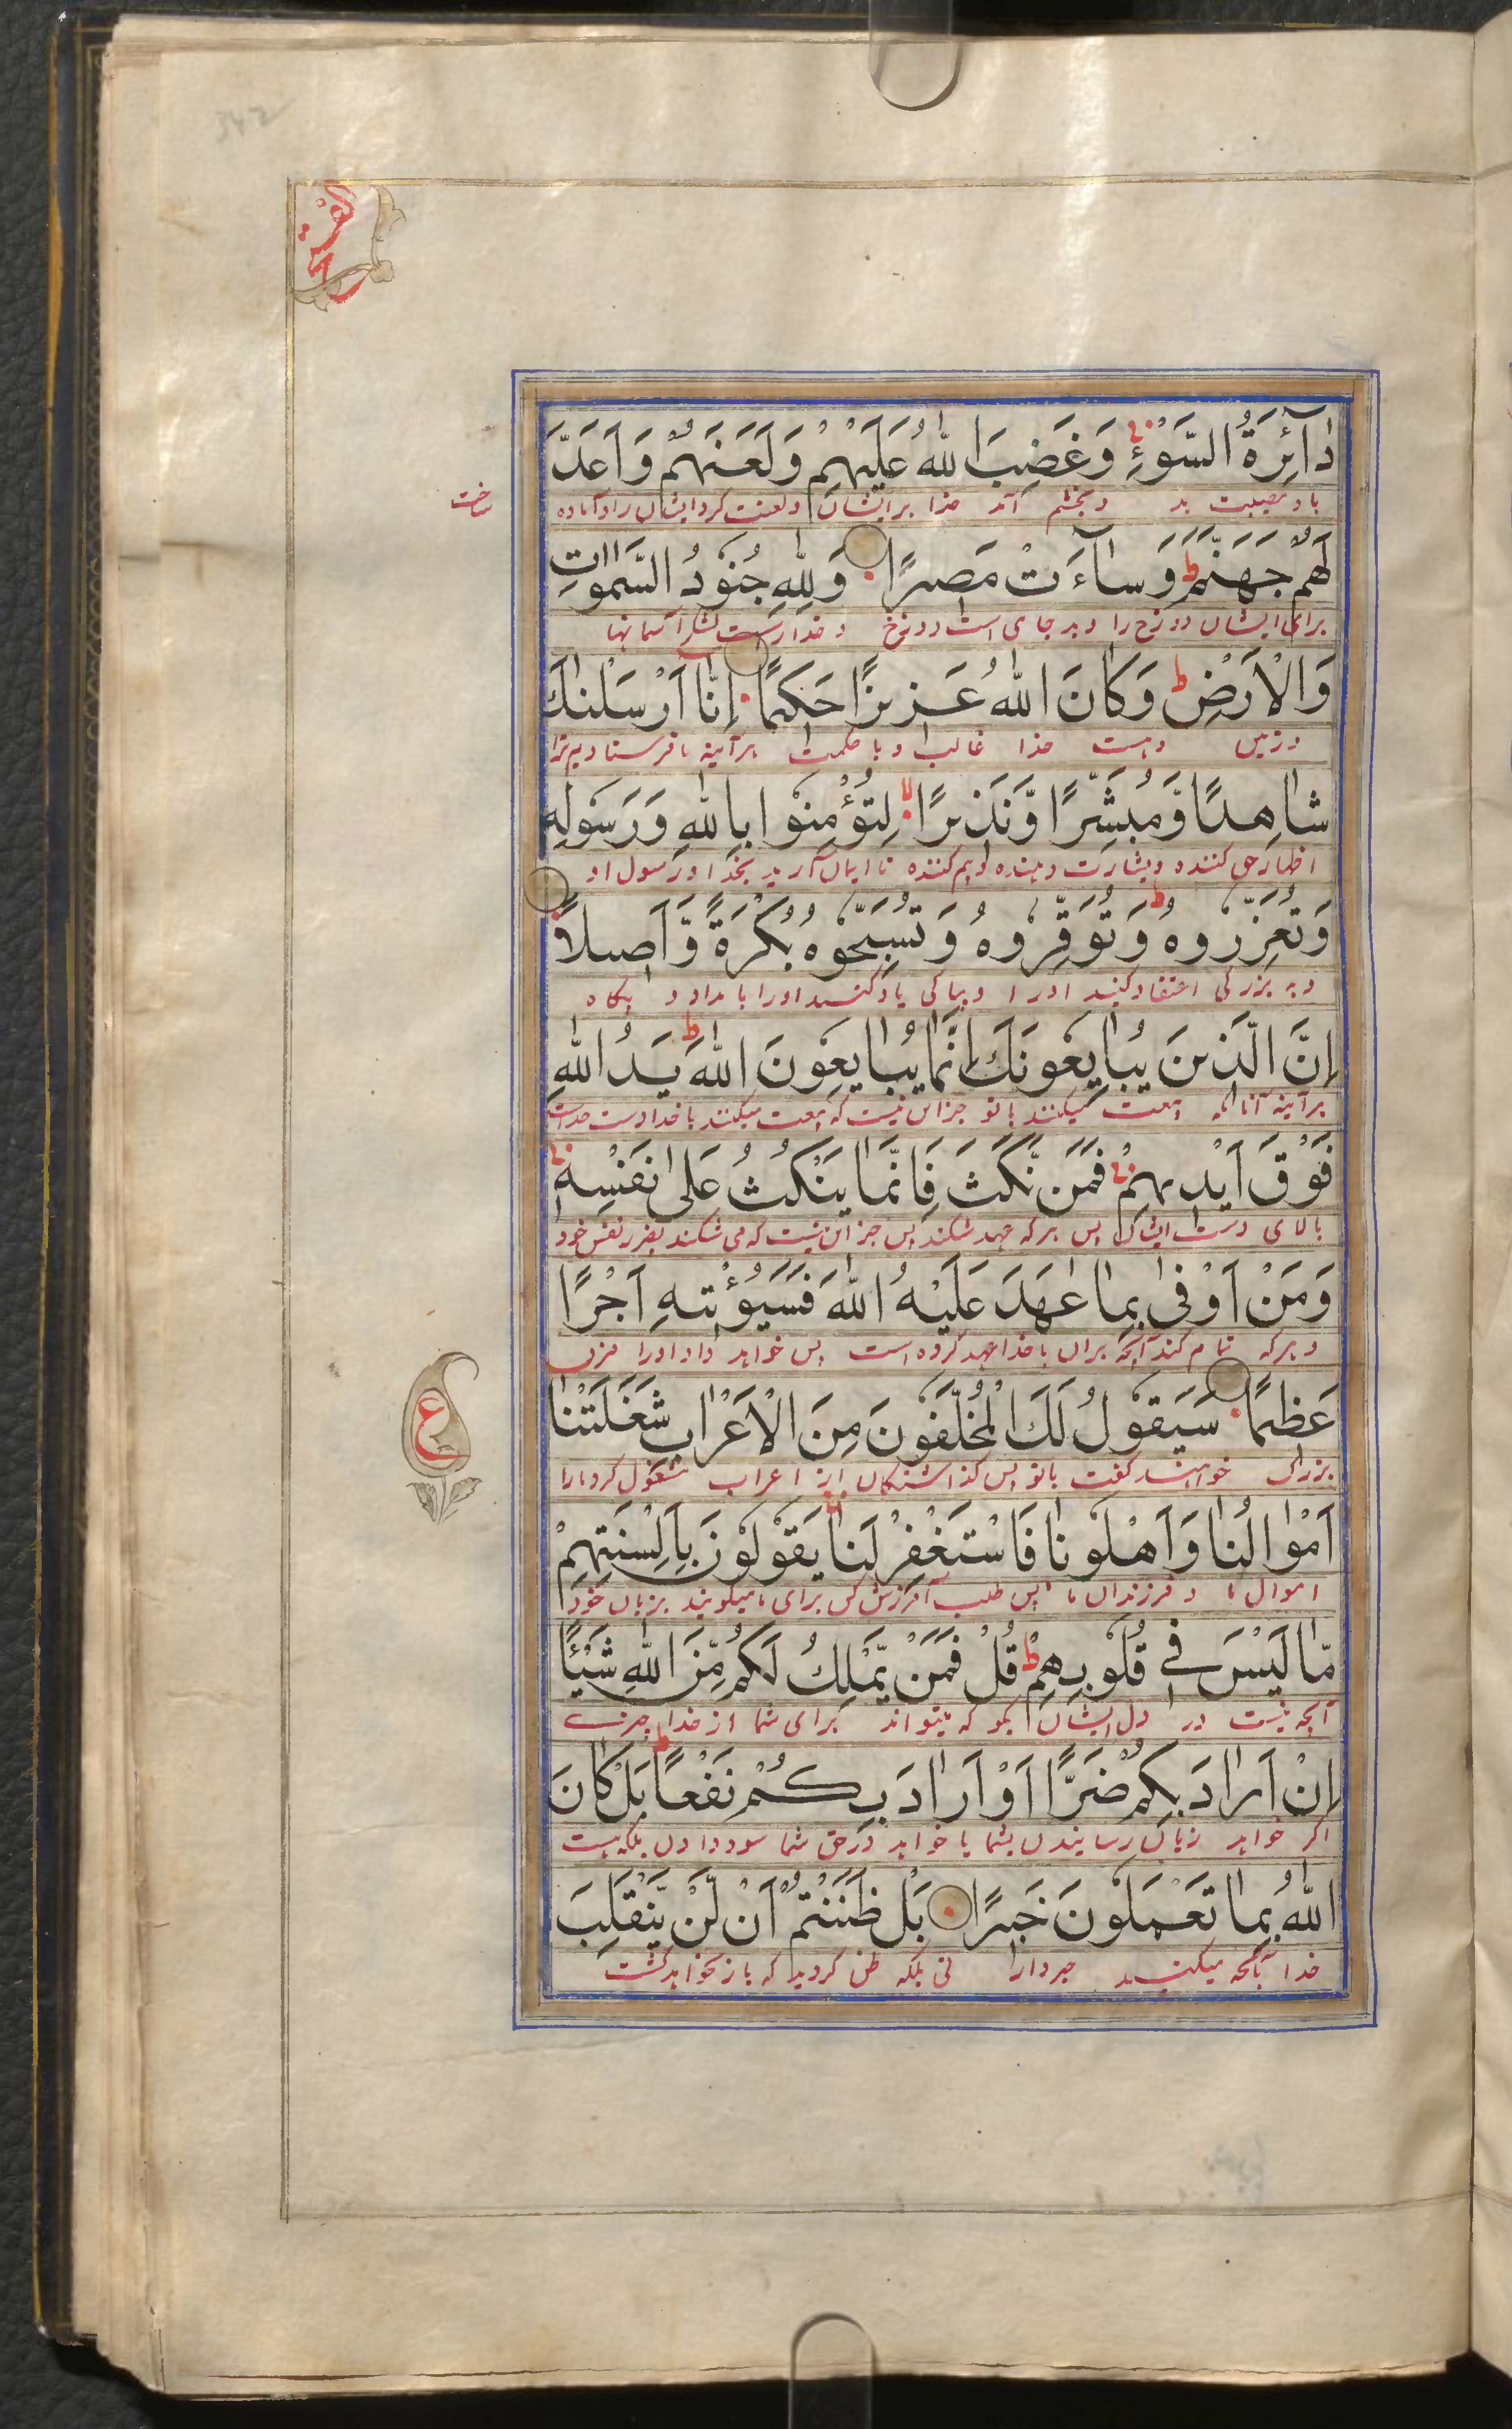 342
الفتح
دَآئِرَةُ السَّوْءِ وَغَضِبَ اللهُ عَلَيْهِمْ وَلَعَنَهُمْ وَاَعَدَّ
باد مصیبت بد و بخشم آمد خدا بر ایشان و لعنت کرد ایشان را و آماده
ساخت
لَهُمْ جَهَنَّمَ ط وَسَآءَتْ مَصِيرًا وَلِلّٰهِ جُنُوْدُ السَّمٰوٰاتِ
برای ایشان دوزخ را و بد جای است دوزخ و خدا راست لشکر آسمانها
وَالْاَرْضِ ط وَكَانَ اللهُ عَزِيزًا حَكِيمًا اِنَّا اَرْسَلْنٰكَ
و زمین و هست خدا غالب و با حکمت هر آینه ما فرستادیم ترا
شَاهِدًا وَّمُبَشِّرًا وَّنَذِيرًا لا لِتُؤْمِنُوْا بِاللهِ وَرَسُوْلِهِ
اظهار حق کننده و بشارت دهنده و بیم کننده تا ایمان آرید بخدا و رسول او
وَتُعَزِّرُوهُ وَتُوَقِّرُوهُ ط وَتُسَبِّحُوْهُ بُكْرَةً وَّاَصِيلًا
و به بزرگی اعتقاد کنید او را و بپاکی یاد کنید او را بامداد و بیگاه
اِنَّ الَّذِينَ يُبَايِعُوْنَكَ اِنَّمَا يُبَايِعُوْنَ اللهَ ط يَدُ اللهِ
هر آینه آنانکه بیعت میکنند با تو جز این نیست که بیعت میکنند با خدا دست خداست
فَوْقَ اَيْدِيهِمْ فَمَنْ نَّكَثَ فَاِنَّمَا يَنْكُثُ عَلٰى نَفْسِهِ
بالای دست ایشان پس هر که عهد شکند پس جز این نیست که می شکند بضرر نفس خود
وَمَنْ اَوْفٰى بِمَا عٰهَدَ عَلَيْهُ اللهَ فَسَيُؤْتِيهِ اَجْرًا
و هر که تمام کند آنچه بران با خدا عهد کرده است پس خواهد داد او را مزد
عَظِيمًا سَيَقُوْلُ لَكَ الْمُخَلَّفُوْنَ مِنَ الْاَعْرَابِ شَغَلَتْنَا
ع
بزرگ خواهند گفت با تو پس گذاشتگان از اعراب مشغول کرد ما را
اَمْوَالُنَا وَاَهْلُوْنَا فَاسْتَغْفِرْ لَنَا يَقُوْلُوْنَ بِاَلْسِنَتِهِمْ
اموال ما و فرزندان ما پس طلب آمرزش کن برای ما میگویند بزبان خود
مَّا لَيْسَ فِي قُلُوْبِهِمْ ط قُلْ فَمَنْ يَّمْلِكُ لَكُمْ مِّنَ اللهِ شَيْئًا
آنچه نیست در دل ایشان بگو که میتواند برای شما از خدا چیزے
اِنْ اَرَادَ بِكُمْ ضَرًّا اَوْ اَرَادَ بِكُمْ نَفْعًا ط بَلْ كَانَ
اگر خواهد زیان رسانیدن بشما یا خواهد در حق شما سود دادن بلکه هست
اللهُ بِمَا تَعْمَلُوْنَ خَبِيرًا بَلْ ظَنَنْتُمْ اَنْ لَّنْ يَّنْقَلِبَ
خدا بآنچه میکنید خبردار نی بلکه ظن کردید که باز نخواهد گشت